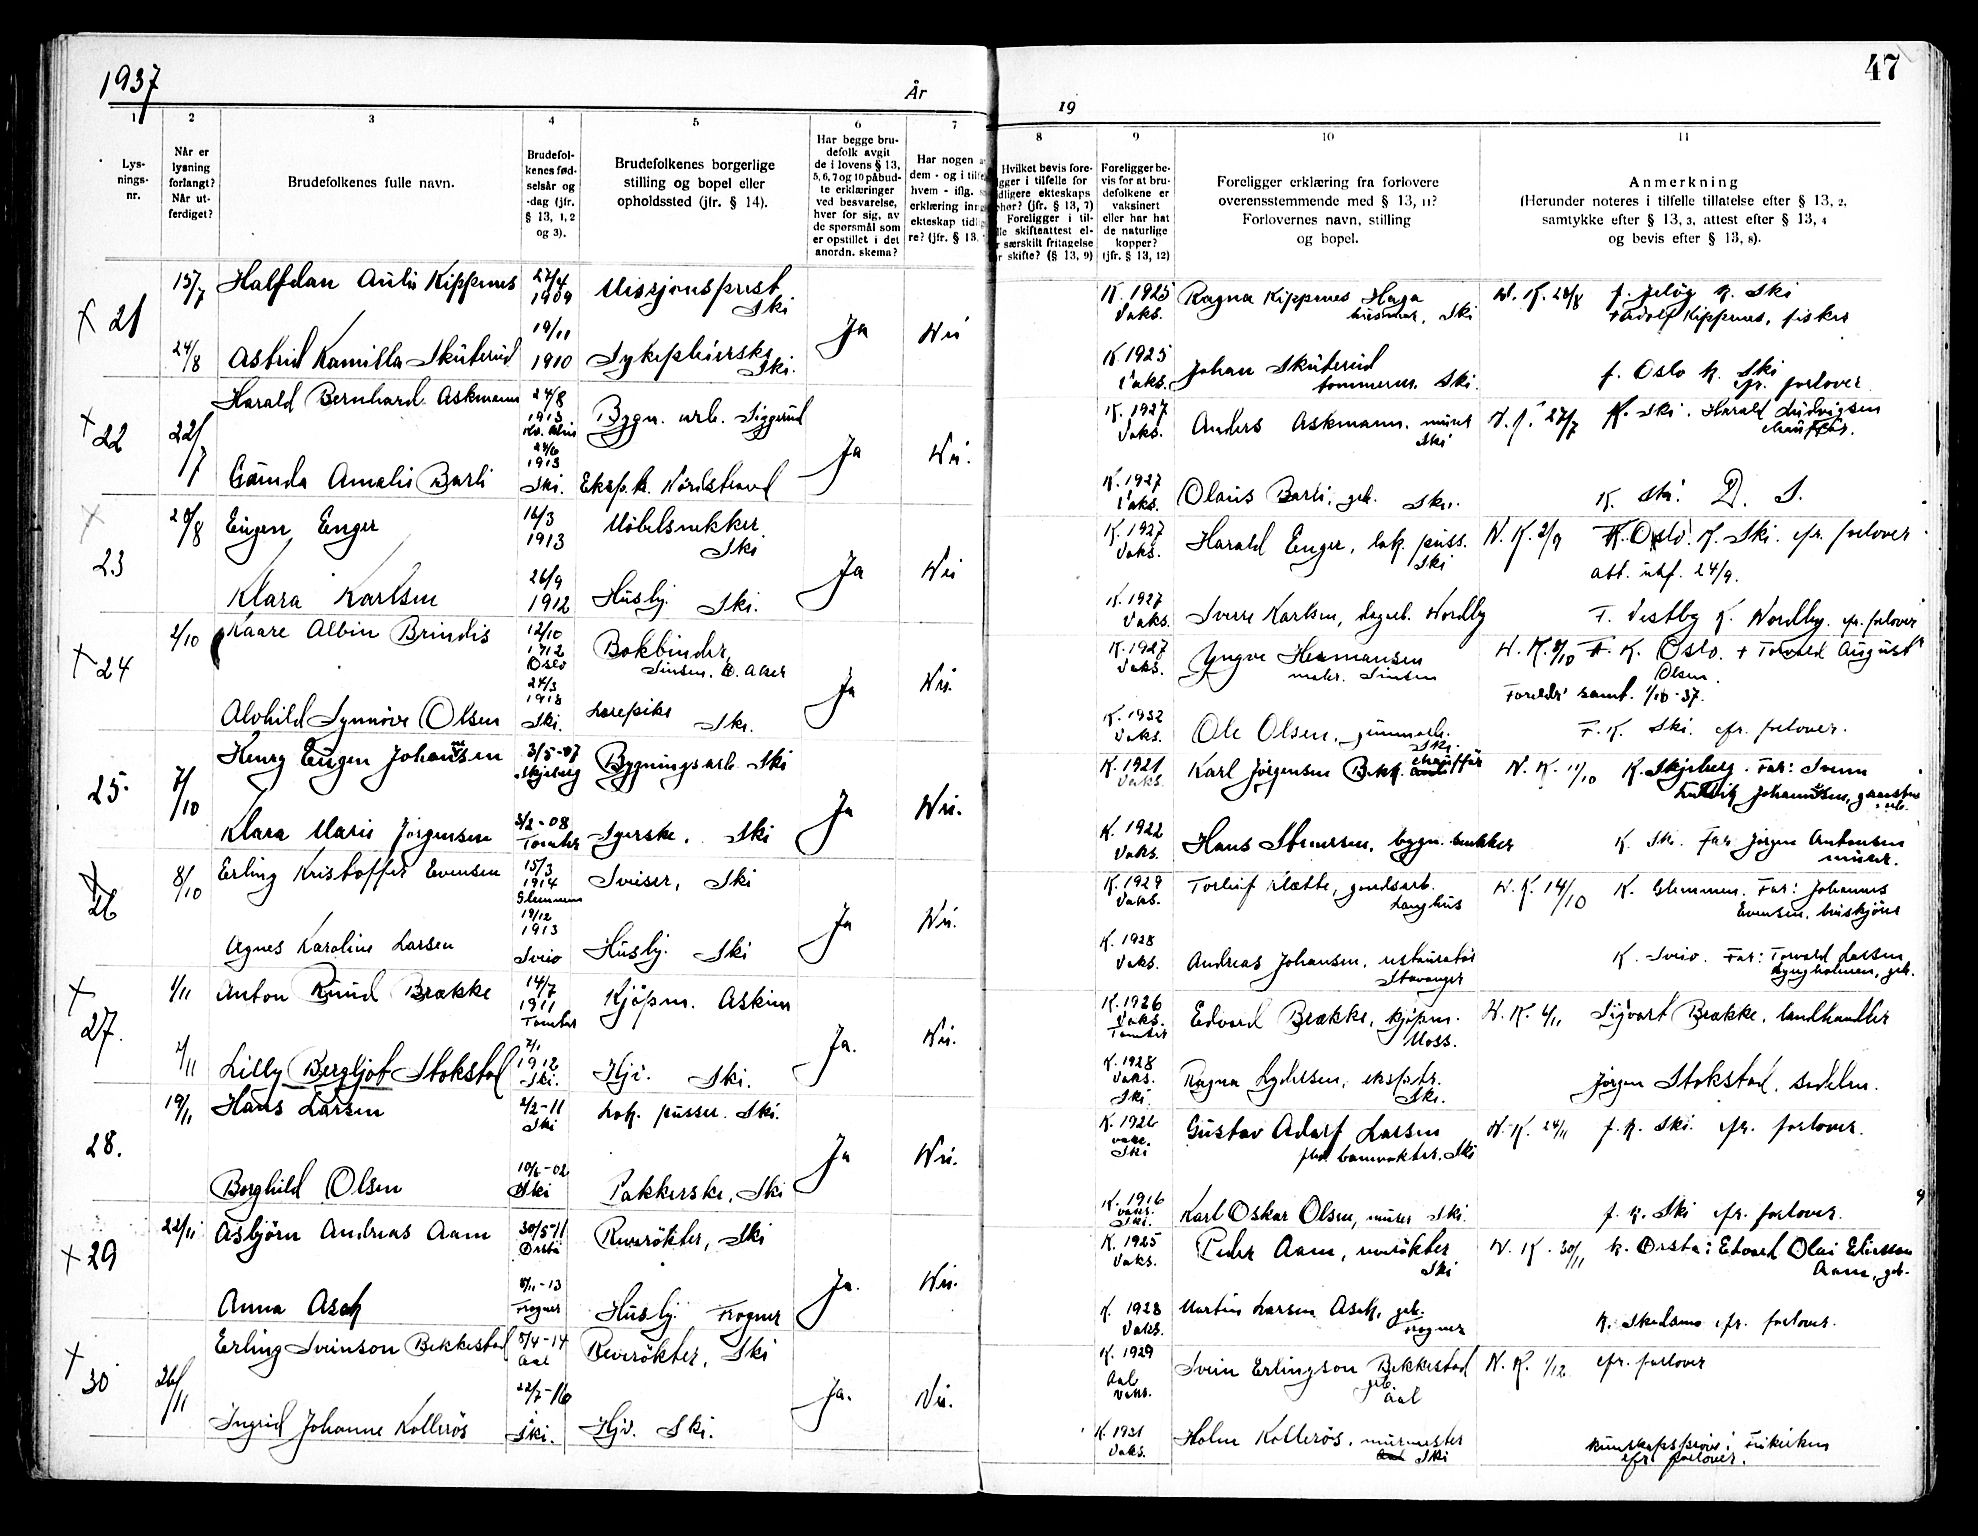 1937
År
19
47
1
2
3
4
5
6
7
8
9
10
11
Lys-
nings-
nr.
Når er
lysning
forlangt?
Når ut-
ferdiget?
Brudefolkenes fulle navn.
Brudefol-
kenes fød-
selsår og
-dag (jfr.
§ 13, 1, 2
og 3).
Brudefolkenes borgerlige
stilling og bopel eller
opholdssted (jfr. § 14).
Har begge bru-
defolk avgit
de i lovens § 13,
5, 6, 7 og 10 påbud-
te erklæringer
ved besvarelse,
hver for sig, av
de spørsmål som
er opstillet i det
anordn. skema?
Har nogen a
dem - og i tilfe
hvem - iflg. s
erklæring inng
ekteskap tidlig
re? (jfr. § 13,
Hvilket bevis fore-
gger i tilfelle for
dligere ekteskaps
her? (jfr. § 13, 7)
Foreligger i til-
lle skifteattest el-
r særskilt fritagelse
r skifte? (§ 13, 9)
Foreligger be-
vis for at bru-
defolkene er
vaksinert
eller har hat
de naturlige
kopper?
(jfr. § 13, 12)
Foreligger erklæring fra forlovere
overensstemmende med § 13, 11?
Forlovernes navn, stilling
og bopel.
Anmerkning
(Herunder noteres i tilfelle tillatelse efter § 13, 2,
samtykke efter § 13, 3, attest efter § 13, 4
og bevis efter § 13, 8).
x 21
15/7
Halfdan Kippenes
27/4
1909
Misjonsprest
Ski
Ja
Nei
K. 1925
Vaks.
Ragna Kippenes Haga
husmor, Ski
N. K. 28/8
K. Ski
Adolf Kippenes, fisker
24/8
Astrid Kamilla Skuterud
19/11
1910
Sykepleierske
Ski.
K. 1925
Vaks.
Johan Skuterud
Ski.
f. Oslo K. Ski
cfr. forlover
x 22
22/7
Harald Bernhard Askmann
24/8
1913
Bygn. arb. Siggerud
Ja
Nei.
K. 1927
Vaks.
Anders Askmann. murer
Ski
27/7
K. Ski. Harald Ludvigsen
chauffør.
Gunda Amalie Barli
1913
Ski.
K. 1927
Vaks.
Olaus Barli, gb. Ski.
K. Ski. D. S.
x
23
28/8
Eugen Enger
16/3
1913
Møbelsnekker
Ski
Ja
Nei
K. 1927
Vaks.
Harald Enger, lok. puss.
Ski
N. K. 2/9
K. Oslo. K. Ski. cfr. forlover
att. utf. 24/9.
Klara Karlsen
26/9
1912
Husbj. Ski.
K. 1927
Vaks.
Sverre Karlsen, Nordby
F. Vestby K. Nordby. cfr. forlover
x 24
2/10
Kaare Albin Brindis
12/10
1912
Oslo
Bokbinder,
Sinsen, Aker
Ja
Nei.
K. 1927
Vaks.
Yngve Hermansen
maler. Sinsen
N. K. 8/10 F. K. Oslo. + Torvald August
Olsen.
Foreldr. samt. 1/10-37.
Alvhild Synnøve Olsen
24/3
1918
Ski.
Ski.
K. 1932
Vaks.
Ole Olsen,
Ski.
F. K. Ski. cfr. forlover.
25.
7/10
Henry Eugen Johannsen
3/5-07
Skjeberg
Bygningsarb. Ski
Ja
Nei.
K. 1921
Vaks.
Karl Jørgensen chauffør
N. K. 11/10
K. Skjeberg. Far:
Johannsen,
Klara Marie Jørgensen
3/2-08
Tomter
Syerske. Ski
K. 1922
Vaks.
Hans bygn. snekker
K. Ski. Far Jørgen Antonsen
murer.
x
26
8/10
Erling Kristoffer Evensen
15/3
1914
Glemmen
Sveiser, Ski
Ja
Nei.
K. 1929
Vaks.
Torleif Slette, gaardsarb.
Langhus
N. K. 14/10
K. Glemmen. Far: Johannes
Evensen,
Agnes Karoline Larsen
19/12
1913
Sveio
Husbj. Ski
K. 1928
Vaks.
Andreas Johansen, restauratør
Stavanger
K. Sveio. Far: Torvald Larsen
Lyngholmen, gb.
x
27.
1/11
Anton Knud Brække
14/7
1911
Tomter
Kjøpm. Askim
Ja.
Nei.
K. 1926
Vaks.
Tomter
Edvard Brække, kjøpm.
Moss.
N. K. 4/11
Sigvart Brække, landhandler
4/11
Lilly Bergljot Stokstad
7/1
1912
Ski.
Hjv. Ski.
K. 1928
Vaks.
Ski.
Ragna Lydersen, ekspedr.
Ski.
Jørgen Stokstad,
28.
19/11
Hans Larsen
2/2-11
Ski
Lok. pusser. Ski.
Ja
Nei.
K. 1926
vaks.
Ski
Gustav Adolf Larsen
banevokter. Ski
N. K. 24/11
f. K. Ski. cfr. forlover.
Borghild Olsen
10/6-02
Ski
Pakkerske, Ski
K. 1916
vaks.
Ski.
Karl Oskar Olsen, murer Ski.
f. K. Ski cfr. forlover.
x 29
22/11
Asbjørn Andreas Aam
30/5-11
Ørsta
Reverøkter, Ski
Ja.
Nei.
K. 1925
Vaks.
Peder Aam, reverøkter
Ski
N. K. 30/11
K. Ørsta: Edvard Olai Eliassen
Aam, gb.
Anna Asak
8/11-13
Frogner
Husbj. Frogner
K. 1928
Vaks.
Martin Larsen Asak, gb.
Frogner
K. Skedsmo cfr. forlover.
x
30
26/11
Erling Sveinson Bekkestad
5/4-14
Aal
Reverøkter, Ski
Ja.
Nei.
K. 1929
Aal
Vaks.
Svein Erlingson Bekkestad
gb.
Aal
N. K. 1/12
cfr. forlover
Ingrid Johanne Kollerøs
22/7-16
Ski.
Hjv. Ski.
K. 1931
Vaks.
Holm Kollerøs, murmester
Ski
kunskapsprøve i Frikirken
cfr forlover.